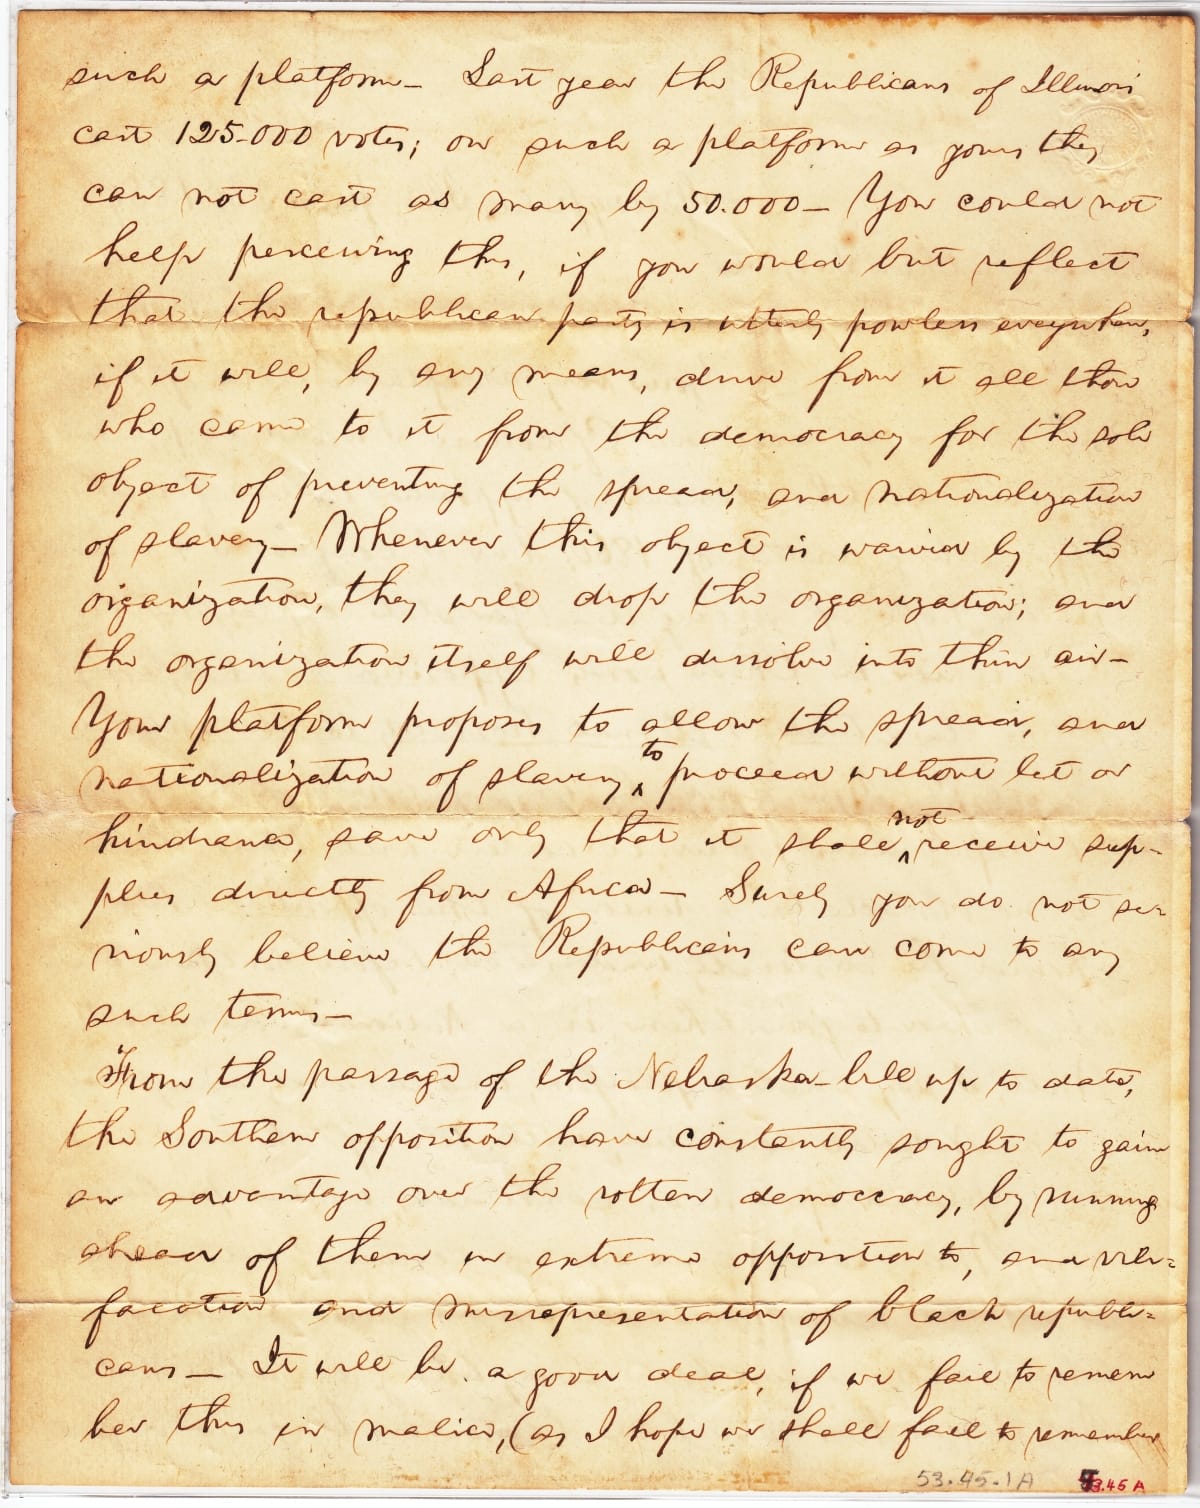 such a platform— Last year the Republicans of Illinois
cast 125.000 votes; on such a platform as yours they
can not cast as many by 50.000— You could not
help perceiving this, if you would but reflect
that the republican party is utterly powerless everywhere,
if it will, by any means, drive from it all those
who came to it from the democracy for the sole
object of preventing the spread, and nationalization
of slavery— Whenever this object is waived by the
organization, they will drop the organization; and
the organization itself will dissolve into thin air—
Your platform proposes to allow the spread, and
nationalization of slavery ^to proceed without let or
hindrance, save only that it shall ^not receive sup-
plies directly from Africa— Surely you do not se-
riously believe the Republicans can come to any
such terms—
From the passage of the Nebraska-bill up to date,
the Southern opposition have constantly sought to gain
an advantage over the rotten democracy, by running
ahead of them in extreme opposition to, and vili=
facation and misrepresentation of black republi=
cans— It will be a good deal, if we fail to remem
ber this in malice, (as I hope we shall fail to remember
53.45.1A
3.45 A